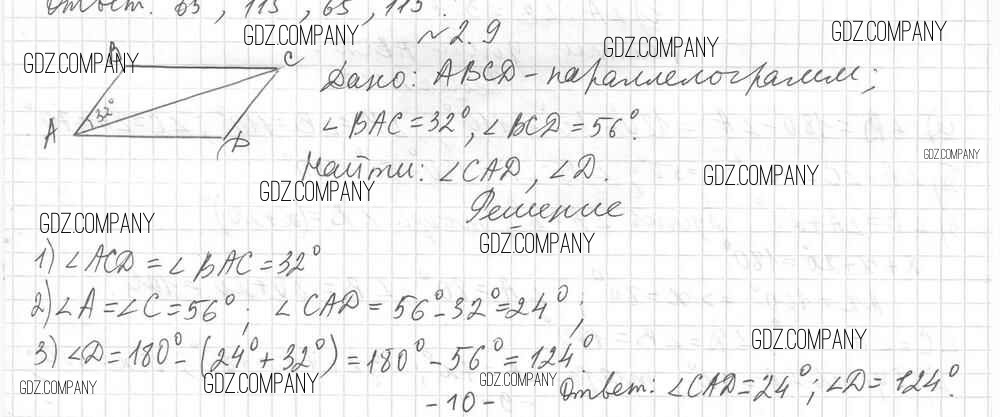 Ответ: 65°, 115°, 65°, 115°.
№2.9
GDZ.COMPANY
GDZ.COMPANY
GDZ.COMPANY
GDZ.COMPANY
B
C
A
D
32°
Дано: ABCD - параллелограмм;
∠BAC = 32°, ∠BCD = 56°.
GDZ.COMPANY
Найти: ∠CAD, ∠D.
GDZ.COMPANY
GDZ.COMPANY
Решение
GDZ.COMPANY
GDZ.COMPANY
1) ∠ACD = ∠BAC = 32°
2) ∠A = ∠C = 56°; ∠CAD = 56° - 32° = 24°;
GDZ.COMPANY
3) ∠D = 180° - (24° + 32°) = 180° - 56° = 124°.
GDZ.COMPANY
GDZ.COMPANY
GDZ.COMPANY
Ответ: ∠CAD = 24°; ∠D = 124°.
- 10 -